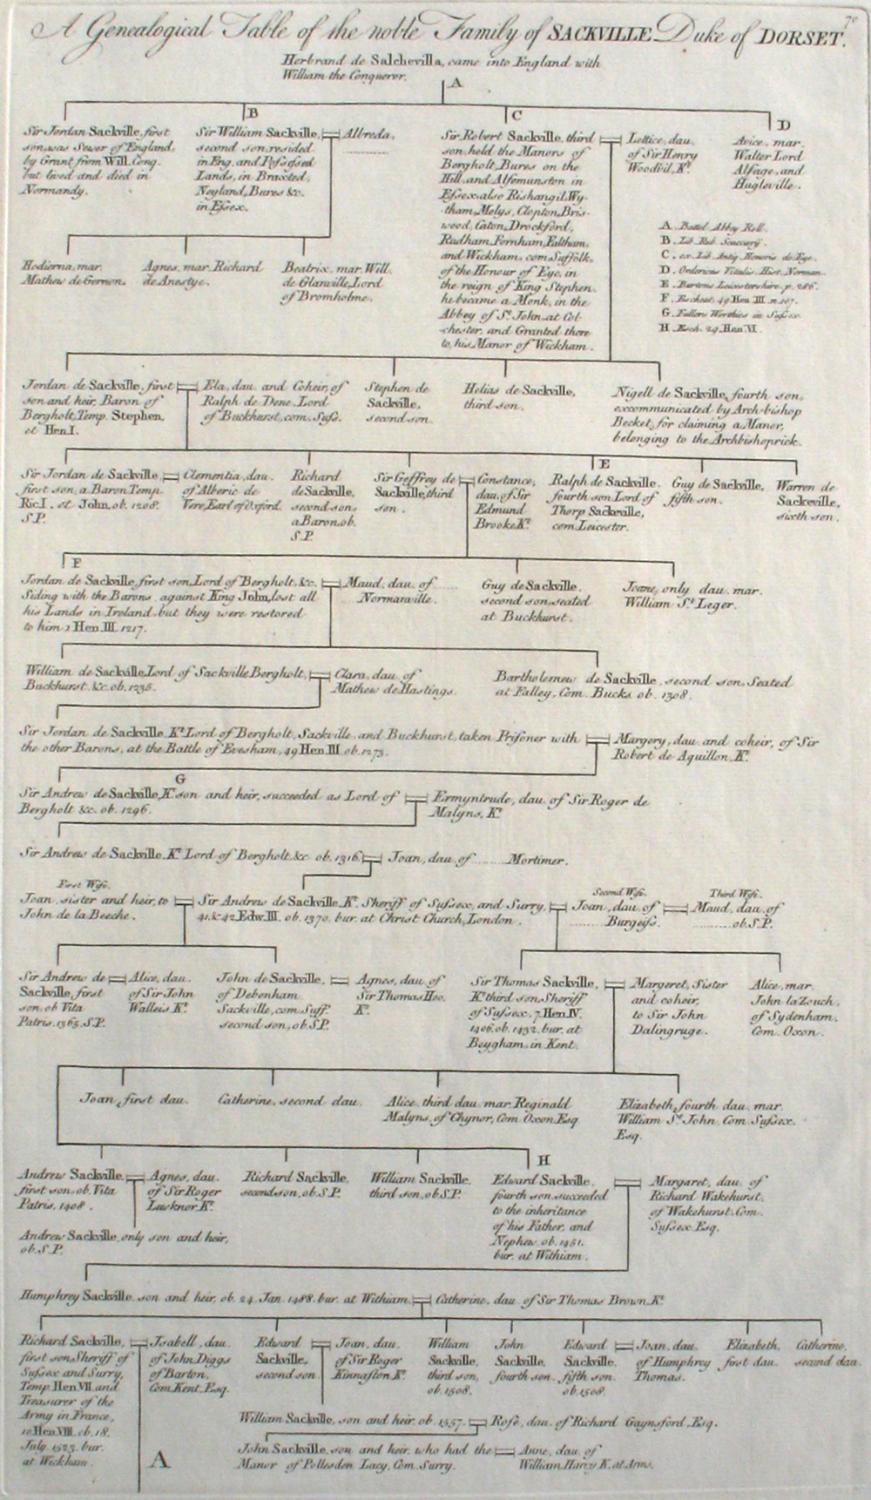 A Genealogical Table of the noble Family of SACKVILLE Duke of DORSET.
70
Herbrand de Salchevilla, came into England with
William the Conqueror.
A
Sir Jordan Sackville, first
son, was Sewer of England,
by Grant from Will. Conq.
but lived and died in
Normandy.
B
Sir William Sackville,
second son, resided
in Eng. and Possessed
Lands, in Braxted,
Neyland, Bures &c.
in Essex.
Albreda.
C
Sir Robert Sackville, third
son, held the Manors of
Bergholt, Bures on the
Hill, and Alfemunston in
Essex also Rishangil, Wy-
tham, Melys, Clopton, Bris-
wood, Caton, Drockford,
Radham, Fernham, Ealtham,
and Wickham, com. Suffolk,
of the Honour of Eye, in
the reign of King Stephen
he became a Monk, in the
Abbey of St. John, at Col-
chester, and Granted there
to, his Manor of Wickham.
Lettice, dau.
of Sir Henry
Woodvil, Kt.
D
Avice, mar.
Walter Lord
Alfage, and
Hugleville.
A. Battel Abby Roll.
B. Lib. Rub. Scaccarij.
C. ex. Lib. Antiq. Honoris de Eye.
D. Ordericus Vitalis Hist. Norman.
E. Burtons Leicestershire, p. 286.
F. Escheat. 49 Hen. III. n. 107.
G. Fullers Worthies in Sussex.
H. Esch. 29 Hen. VI.
Hodierna, mar.
Mathew de Gernon.
Agnes, mar. Richard
de Anestye.
Beatrix, mar. Will.
de Glanville, Lord
of Bromholme.
Jordan de Sackville, first
son and heir, Baron of
Bergholt, Temp. Stephen,
et Hen. I.
Ela, dau. and Coheir, of
Ralph de Dene, Lord
of Buckhurst, com. Suss.
Stephen de
Sackville,
second son.
Helias de Sackville,
third son.
Nigell de Sackville, fourth son,
excommunicated by Arch-bishop
Becket, for claiming a Manor,
belonging to the Archbishoprick.
Sir Jordan de Sackville,
first son, a Baron Temp.
Ric. I. et John, ob. 1208.
S.P.
Clementia, dau.
of Alberic de
Vere, Earl of Oxford.
Richard
de Sackville,
second son,
a Baron, ob.
S.P.
Sir Geffrey de
Sackville, third
son.
Constance,
dau. of Sir
Edmund
Brooke Kt.
E
Ralph de Sackville,
fourth son, Lord of
Thorp Sackville,
com. Leicester.
Guy de Sackville,
fifth son.
Warren de
Sackeville,
sixth son.
F
Jordan de Sackville, first son, Lord of Bergholt, &c.
Siding with the Barons, against King John, lost all
his Lands in Ireland, but they were restored
to him 1 Hen. III. 1217.
Maud, dau. of
Normanville.
Guy de Sackville,
second son, seated
at Buckhurst.
Joane, only dau. mar.
William St. Leger.
William de Sackville, Lord of Sackville Bergholt,
Buckhurst. &c. ob. 1235.
Clara, dau. of
Mathew de Hastings.
Bartholemew de Sackville, second son, Seated
at Falley, Com. Bucks, ob. 1308.
Sir Jordan de Sackville, Kt. Lord of Bergholt, Sackville and Buckhurst, taken Prisoner with
the other Barons, at the Battle of Evesham, 49 Hen. III. ob. 1273.
Margery, dau. and coheir, of Sir
Robert de Aquillon, Kt.
G
Sir Andrew de Sackville, Kt. son and heir, succeeded as Lord of
Bergholt &c. ob. 1296.
Ermyntrude, dau. of Sir Roger de
Malyns, Kt.
Sir Andrew de Sackville, Kt. Lord of Bergholt, &c. ob. 1316.
Joan, dau. of ...... Mortimer.
First Wife.
Joan, sister and heir, to
John de la Beeche.
Sir Andrew de Sackville, Kt. Sheriff of Sussex, and Surry,
41. & 42 Edw. III. ob. 1370. bur. at Christ Church, London.
Second Wife.
Joan, dau. of
Burgeiss.
Third Wife.
Maud, dau. of
ob. S.P.
Sir Andrew de
Sackville, first
son, ob. Vita
Patris, 1365, S.P.
Alice, dau.
of Sir John
Walleis Kt.
John de Sackville,
of Debenham
Sackville, com. Suff.
second son, ob. S.P.
Agnes, dau. of
Sir Thomas Hoo,
Kt.
Sir Thomas Sackville,
Kt. third son, Sheriff
of Sussex, 7 Hen. IV.
1406. ob. 1432. bur. at
Beygham, in Kent.
Margeret, Sister
and coheir,
to Sir John
Dalingruge.
Alice, mar.
John la Zouch,
of Sydenham,
Com. Oxon.
Joan, first dau.
Catherine, second dau.
Alice, third dau. mar. Reginald
Malyns, of Chynor, Com. Oxon. Esq.
Elizabeth, fourth dau. mar.
William St. John, Com. Sussex.
Esq.
Andrew Sackville,
first son, ob. Vita
Patris, 1408.
Agnes, dau.
of Sir Roger
Lewknor Kt.
Richard Sackville,
second son, ob. S.P.
William Sackville,
third son, ob. S.P.
H
Edward Sackville,
fourth son, succeeded
to the inheritance
of his Father, and
Nephew, ob. 1451.
bur. at Withiam.
Margaret, dau. of
Richard Wakehurst,
of Wakehurst, Com.
Sussex Esq.
Andrew Sackville, only son and heir,
ob. S.P.
Humphrey Sackville, son and heir, ob. 24 Jan. 1488. bur. at Withiam.
Catherine, dau. of Sir Thomas Brown, Kt.
Richard Sackville,
first son, Sheriff of
Sussex and Surry,
Temp. Hen. VII. and
Treasurer of the
Army in France,
10 Hen. VIII. ob. 18.
July. 1523. bur.
at Wickham.
Isabell, dau.
of John Diggs
of Barton,
Com. Kent. Esq.
Edward
Sackville,
second son.
Joan, dau.
of Sir Roger
Kinnaston Kt.
William
Sackville,
third son,
ob. 1508.
John
Sackville,
fourth son.
Edward
Sackville,
fifth son,
ob. 1508.
Joan, dau.
of Humphrey
Thomas.
Elizabeth,
first dau.
Catherine,
second dau.
William Sackville, son and heir, ob. 1557.
Rose, dau. of Richard Gaynsford, Esq.
John Sackville, son and heir, who had the
Manor of Pollesden Lacy, Com. Surry.
Anne, dau. of
William Harvy K. at Arms.
A